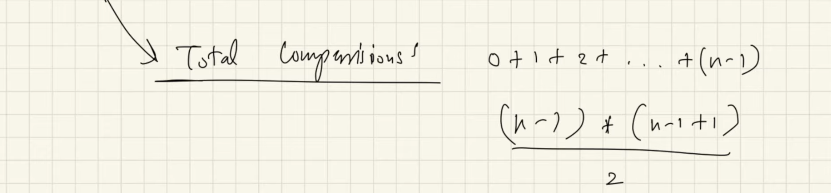 Total Comparisions: 0 + 1 + 2 + . . . + (n-1)
(n-1) * (n-1+1)
2